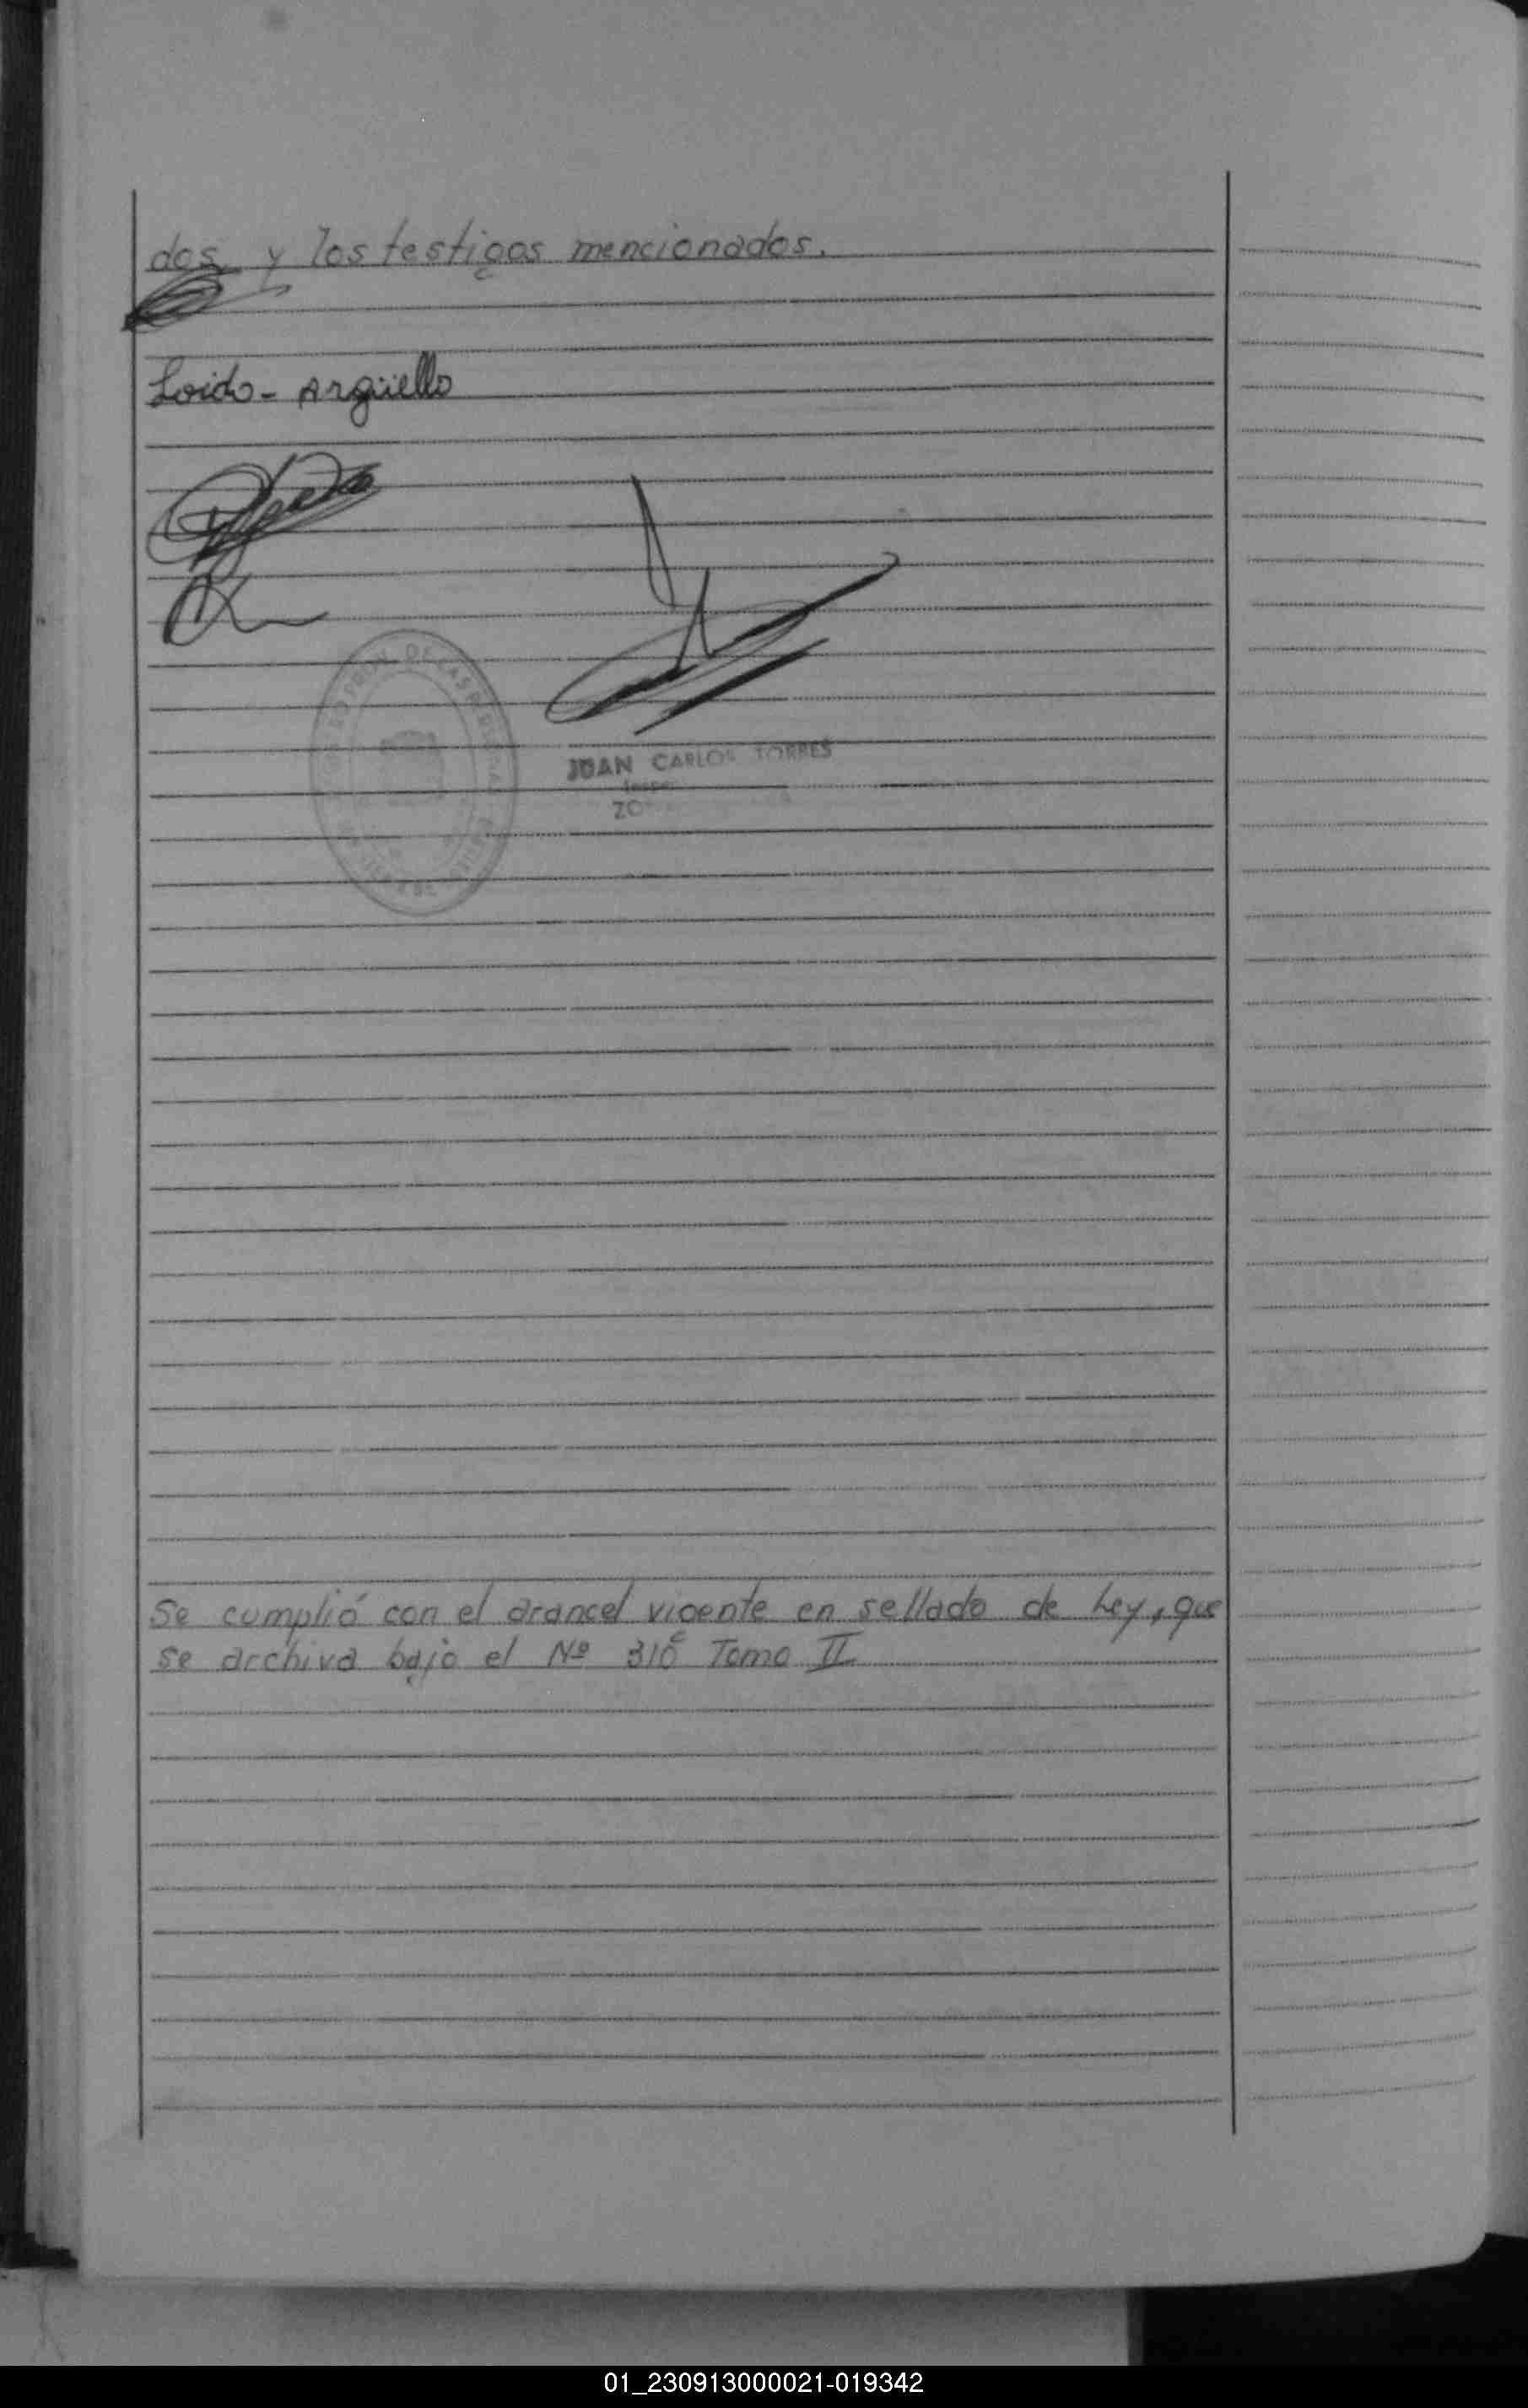 dos, y los testigos mencionados.
Loido - Argüello
JUAN CARLOS TORRES
Se cumplió con el arancel vigente en sellado de Ley, que
se archiva bajo el Nº Tomo II
01_230913000021-019342